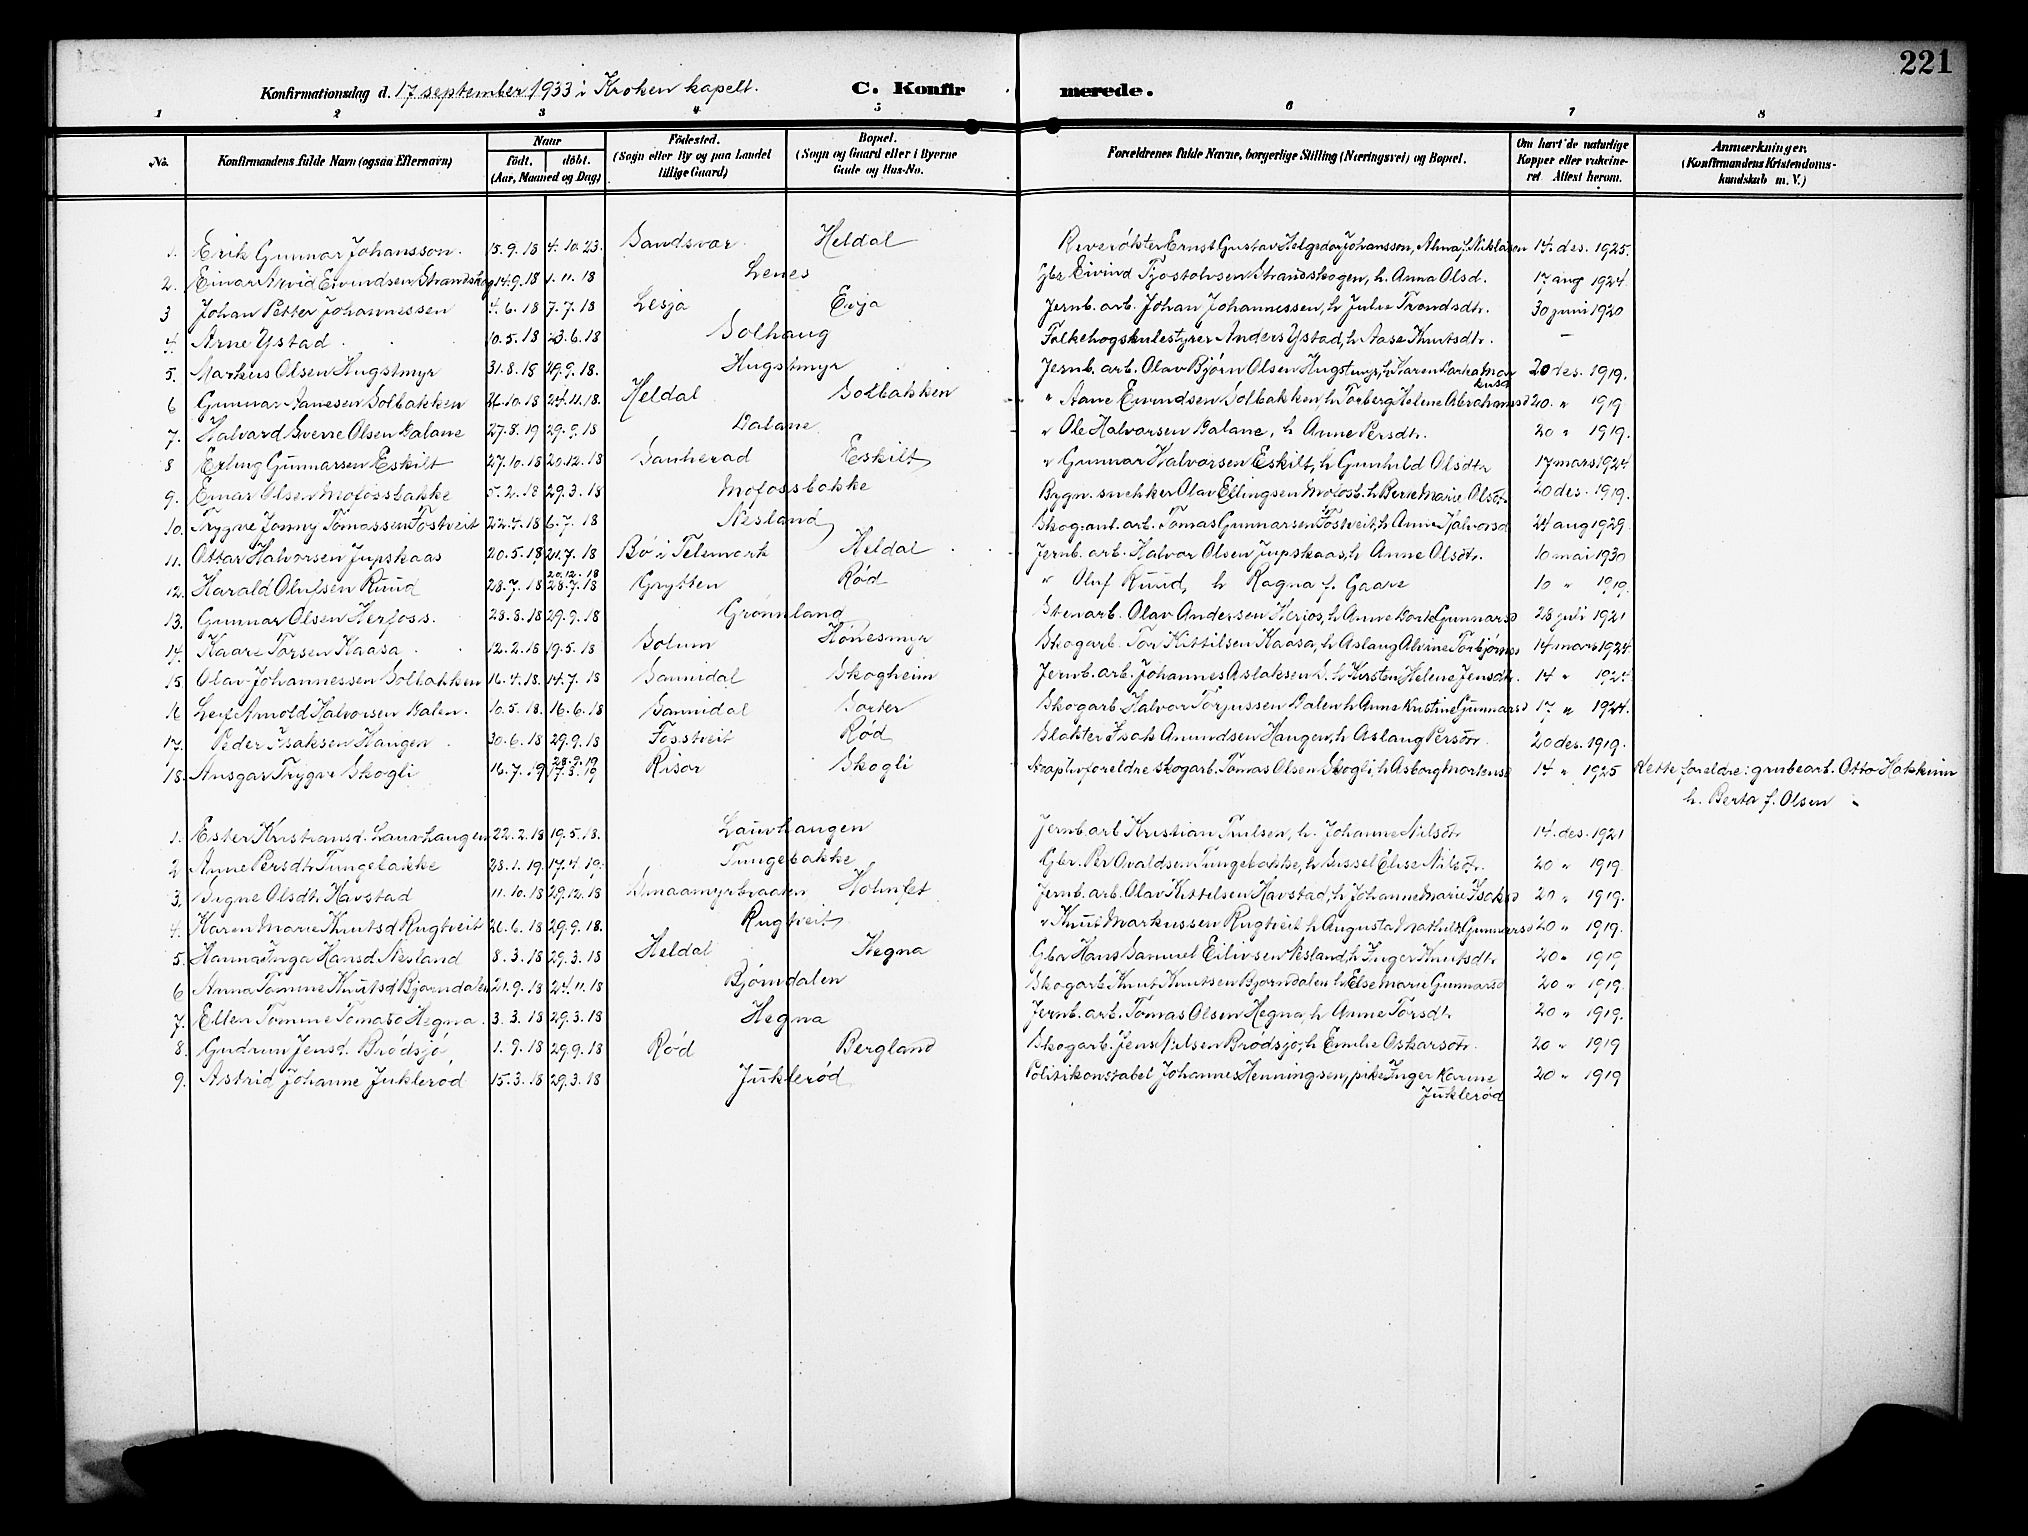 221
Konfirmationsdag d. 17 september 1933 i Kroken kapell. C. Konfirmerede.
1 2 3 4 5 6 7 8
No. Konfirmandens fulde Navn (ogsaa Efternavn) Naar født. døbt. (Aar, Maaned og Dag) Fødested. (Sogn eller By og paa Landet tillige Gaard) Bopæl. (Sogn og Gaard eller i Byerne Gade og Hus-No. Forældrenes fulde Navne, borgerlige Stilling (Næringsvei) og Bopæl. Om havt de naturlige Kopper eller vakcineret Attest herom. Anmærkninger, (Konfirmandens Kristendomskundskab m. V.)
1. Erik Gunnar Johansson. 15.9.18 4.10.23. Sandsvær Heldal Ernst Gustav Johansson, Alma f. Niklasen 14. des. 1925.
2. Einar Arvid Eivindsen Strandskog 14.9.18 1.11.18 Lenes Gbr. Eivind Tjostolvsen Strandskogen, h. Anna Olsd. 17 aug 1924
3 Johan Petter Johannessen 4.6.18 7.7.18 Lesja Evja Jernb. arb. Johan Johannessen, h Julie Trondsdtr. 30 juni 1920
4. Arne Ystad 10.5.18 23.6.18 Solhaug Folkehøgskulestyrer Anders Ystad, h Aase Knutsdtr. –
5. Markus Olsen Hugstmyr 31.8.18 29.9.18. Hugstmyr Jernb. arb. Olav Bjørn Olsen Hugstmyr, h Karen Markusd 20 des. 1919.
6 Gunnar Aanesen Solbakken 26.10.18 24.11.18. Heldal Solbakken " Aane Eivindsen Solbakken, h Torberg Helene Abrahamsd 20. " 1919
7. Halvard Sverre Olsen Dalane 27.8.19 29.9.18 Dalane " Ole Halvorsen Dalane, h Anne Persdtr. 20 " 1919.
8 Erling Gunnarsen Eskilt 27.10.18 20.12.18 Sauherad Eskilt " Gunnar Halvorsen Eskilt, h Gunhild Olsdtr 17 mars 1924
9. Einar Olsen Mofossbakke 5.2.18 29.3.18 Mofossbakke Bygn. snekker Olav Ellingsen Mofosb. h Berte Marie Olsdtr 20 des. 1919.
10. Trygve Jonny Tomassen Fostveit 22.4.18 6.7.18 Nesland Skog.ant.arb. Tomas Gunnarsen Fostveit, h Anne Halvorsd 24 aug 1929.
11. Ottar Halvorsen Jupskaas 20.5.18 21.7.18 Bø i Telemark Heldal Jernb. arb. Halvor Olsen Jupskaas, h Anne Olsdtr. 10 mai 1930
12. Harald Olufsen Ruud 28.7.18 20.12.18 28.7.18 Grytten Rød " Oluf Ruud, h Ragna f. Gaare 10 " 1919.
13. Gunnar Olsen Herfoss. 28.8.18 29.9.18 Grønnland Stenarb. Olav Andersen Herfos, h Anne Gunnarsd 28 juli 1921
14. Kaare Torsen Kaasa 12.2.18 19.5.18 Solum Hønesmyr Skogarb. Tor Kittilsen Kaasa, h Aslaug Alvine Torbjørnsd 14 mars 1924
15. Olav Johannessen Solbakken 16.4.18. 14.7.18 Sannidal Skogheim Jernb. arb. Johannes Aslaksen S. h Kirsten Helene Jensdtr. 14 " 1924
16 Leif Arnold Halvorsen Dalen. 10.5.18. 16.6.18 Sannidal Sorter Skogarb. Halvor Torjussen Dalen h Anne Kristine Gunnarsd 17 " 1924.
17. Peder Isaksen Haugen 30.6.18 29.9.18 Fosstveit Rød Slakter Isak Amundsen Haugen, h Aslaug Persdtr 20 des. 1919.
18. Ansgar Trygve Skogli 16.7.19 28.9.19 17.8.19 Risør Skogli Adoptivforeldre skogarb. Tomas Olsen Skogli, h Asborg Mortensd 14 " 1925 Rette foreldre: grubearb. Otto
h. Berta f. Olsen
1. Ester Kristiansd. Lauvhaugen 22.2.18 19.5.18. Lauvhaugen Jernb. arb. Kristian Trulsen, h. Johanne Nilsdtr 14. des. 1921
2 Anne Persdtr Tungebakke 28.1.19. 17.4.19. Tungebakke Gbr. Per Avaldsen Tungebakke, h Sissel Elise Nilsdtr. 20 " 1919.
3. Signe Olsdtr. Havstad 11.10.18 29.12.18 Smaamyrbraaten Holmset Jernb. arb. Olav Kittelsen Havstad, h Johanne Marie Isaksd 20 " 1919.
4. Karen Marie Knutsd Rugtveit 26.6.18 29.9.18. Rugtveit " Knut Markussen Rugtveit, h Augusta Mathilde Gunnarsd 20 " 1919.
5. Hanna Inga Hansd Nesland 8.3.18 29.3.18 Heldal Hegna Gbr Hans Samuel Eilivsen Nesland, h Inger Knutsdtr 20 " 1919
6 Anna Tomine Knutsd Bjørndalen 21.9.18 24.11.18 Bjørndalen Skogarb. Knut Knutsen Bjørndalen h Else Marie Gunnarsd 20 " 1919.
7. Ellen Tomine Tomasd Hegna. 3.3.18 29.3.18 Hegna Jernb. arb. Tomas Olsen Hegna, h Anne Torsdtr 20 " 1919.
8. Gudrun Jensd. Brødsjø 1.9.18 29.9.18 Rød Bergland Skogarb. Jens Nilsen Brødsjø, h Emilie Oskarsdtr. 20 " 1919
9. Astrid Johanne Juklerød 15.3.18 29.3.18 Juklerød Politikonstabel Johannes Henningsen, pike Inger Karine 20 " 1919
Juklerød